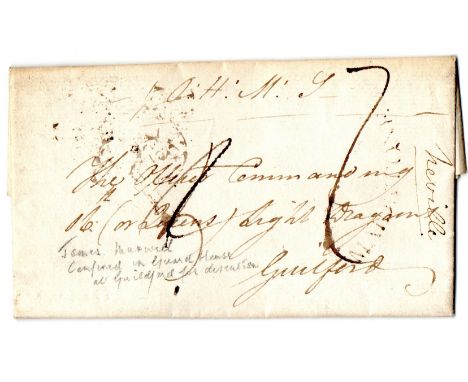 O. H. M. S
The Officer Commanding
16 (or Queens) Light Dragoons
Guilford
Neville
James Maxwell
Confined in Guard House
at Guildford for desertion
7